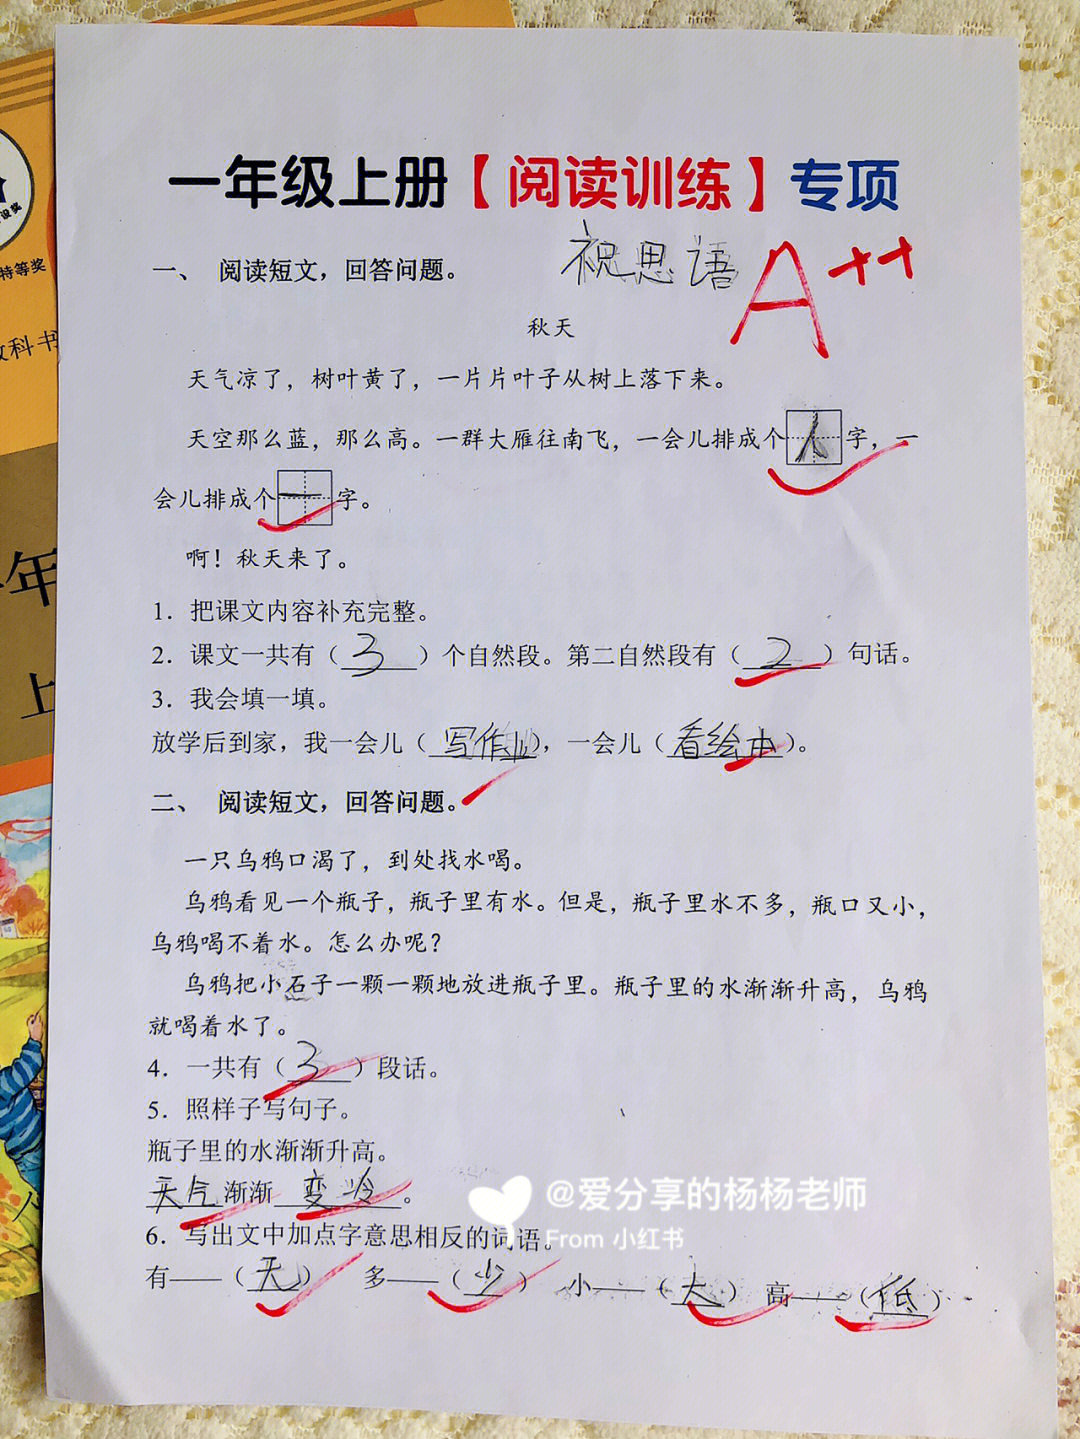 一年级上册【阅读训练】专项
一、 阅读短文，回答问题。
祝思语
A++
秋天
天气凉了，树叶黄了，一片片叶子从树上落下来。
天空那么蓝，那么高。一群大雁往南飞，一会儿排成个人字，一
会儿排成个一字。
啊！秋天来了。
1．把课文内容补充完整。
2．课文一共有（3）个自然段。第二自然段有（2）句话。
3．我会填一填。
放学后到家，我一会儿（写作业），一会儿（看绘本）。
二、 阅读短文，回答问题。
一只乌鸦口渴了，到处找水喝。
乌鸦看见一个瓶子，瓶子里有水。但是，瓶子里水不多，瓶口又小，
乌鸦喝不着水。怎么办呢？
乌鸦把小石子一颗一颗地放进瓶子里。瓶子里的水渐渐升高，乌鸦
就喝着水了。
4．一共有（3）段话。
5．照样子写句子。
瓶子里的水渐渐升高。
天气渐渐变冷。
6．写出文中加点字意思相反的词语。
有——（无） 多——（少） 小——（大） 高——（低）
@爱分享的杨杨老师
From 小红书
特等奖
教科书
年
上